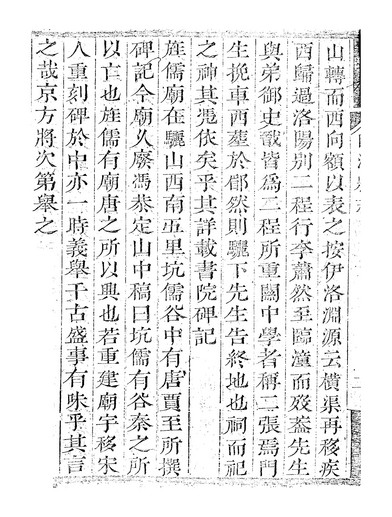 山轉而西向額以表之按伊洛淵源云橫渠再移疾
西歸過洛陽別二程行李蕭然至臨潼而歿葢先生
與弟御史戩皆爲二程所重關中學者稱二張焉門
生挽車西塟於郿然則驪下先生告終地也祠而祀
之神其憑依矣乎其詳載書院碑記
旌儒廟在驪山西南五里坑儒谷中有唐賈至所撰
碑記今廟久廢馮恭定山中稿曰坑儒有谷秦之所
以亡也旌儒有廟唐之所以興也若重建廟宇移宋
人重刻碑於中亦一時義舉千古盛事有味乎其言
之哉京方將次第舉之